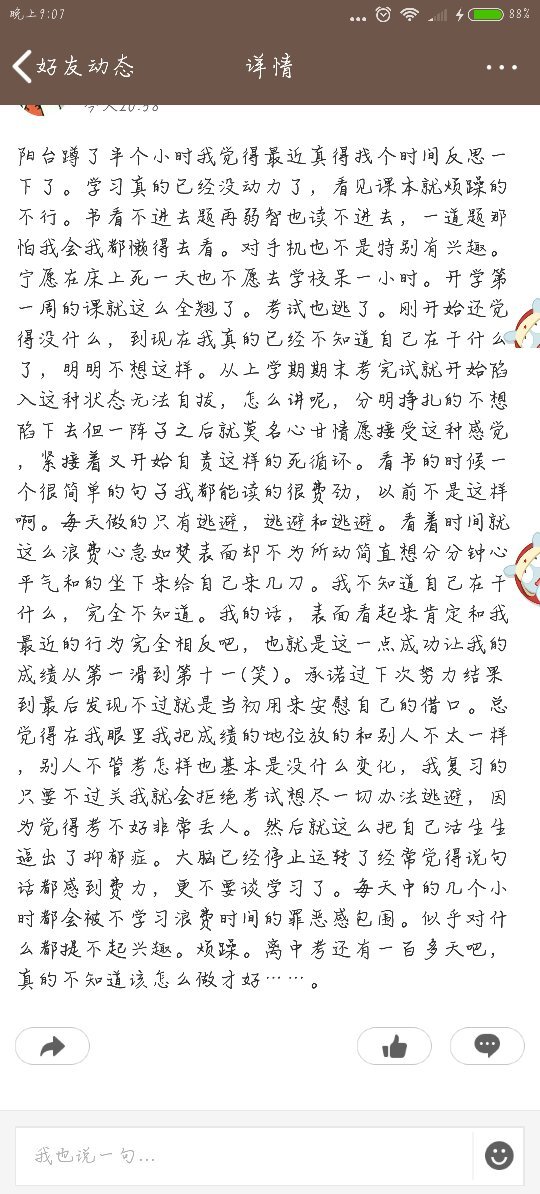 晚上9:07
88%
好友动态
详情
今天20:58
阳台蹲了半个小时我觉得最近真得找个时间反思一
下了。学习真的已经没动力了，看见课本就烦躁的
不行。书看不进去题再弱智也读不进去，一道题那
怕我会我都懒得去看。对手机也不是特别有兴趣。
宁愿在床上死一天也不愿去学校呆一小时。开学第
一周的课就这么全翘了。考试也逃了。刚开始还觉
得没什么，到现在我真的已经不知道自己在干什么
了，明明不想这样。从上学期期末考完试就开始陷
入这种状态无法自拔，怎么讲呢，分明挣扎的不想
陷下去但一阵子之后就莫名心甘情愿接受这种感觉
，紧接着又开始自责这样的死循环。看书的时候一
个很简单的句子我都能读的很费劲，以前不是这样
啊。每天做的只有逃避，逃避和逃避。看着时间就
这么浪费心急如焚表面却不为所动简直想分分钟心
平气和的坐下来给自己来几刀。我不知道自己在干
什么，完全不知道。我的话，表面看起来肯定和我
最近的行为完全相反吧，也就是这一点成功让我的
成绩从第一滑到第十一(笑)。承诺过下次努力结果
到最后发现不过就是当初用来安慰自己的借口。总
觉得在我眼里我把成绩的地位放的和别人不太一样
，别人不管考怎样也基本是没什么变化，我复习的
只要不过关我就会拒绝考试想尽一切办法逃避，因
为觉得考不好非常丢人。然后就这么把自己活生生
逼出了抑郁症。大脑已经停止运转了经常觉得说句
话都感到费力，更不要谈学习了。每天中的几个小
时都会被不学习浪费时间的罪恶感包围。似乎对什
么都提不起兴趣。烦躁。离中考还有一百多天吧，
真的不知道该怎么做才好……。
我也说一句...